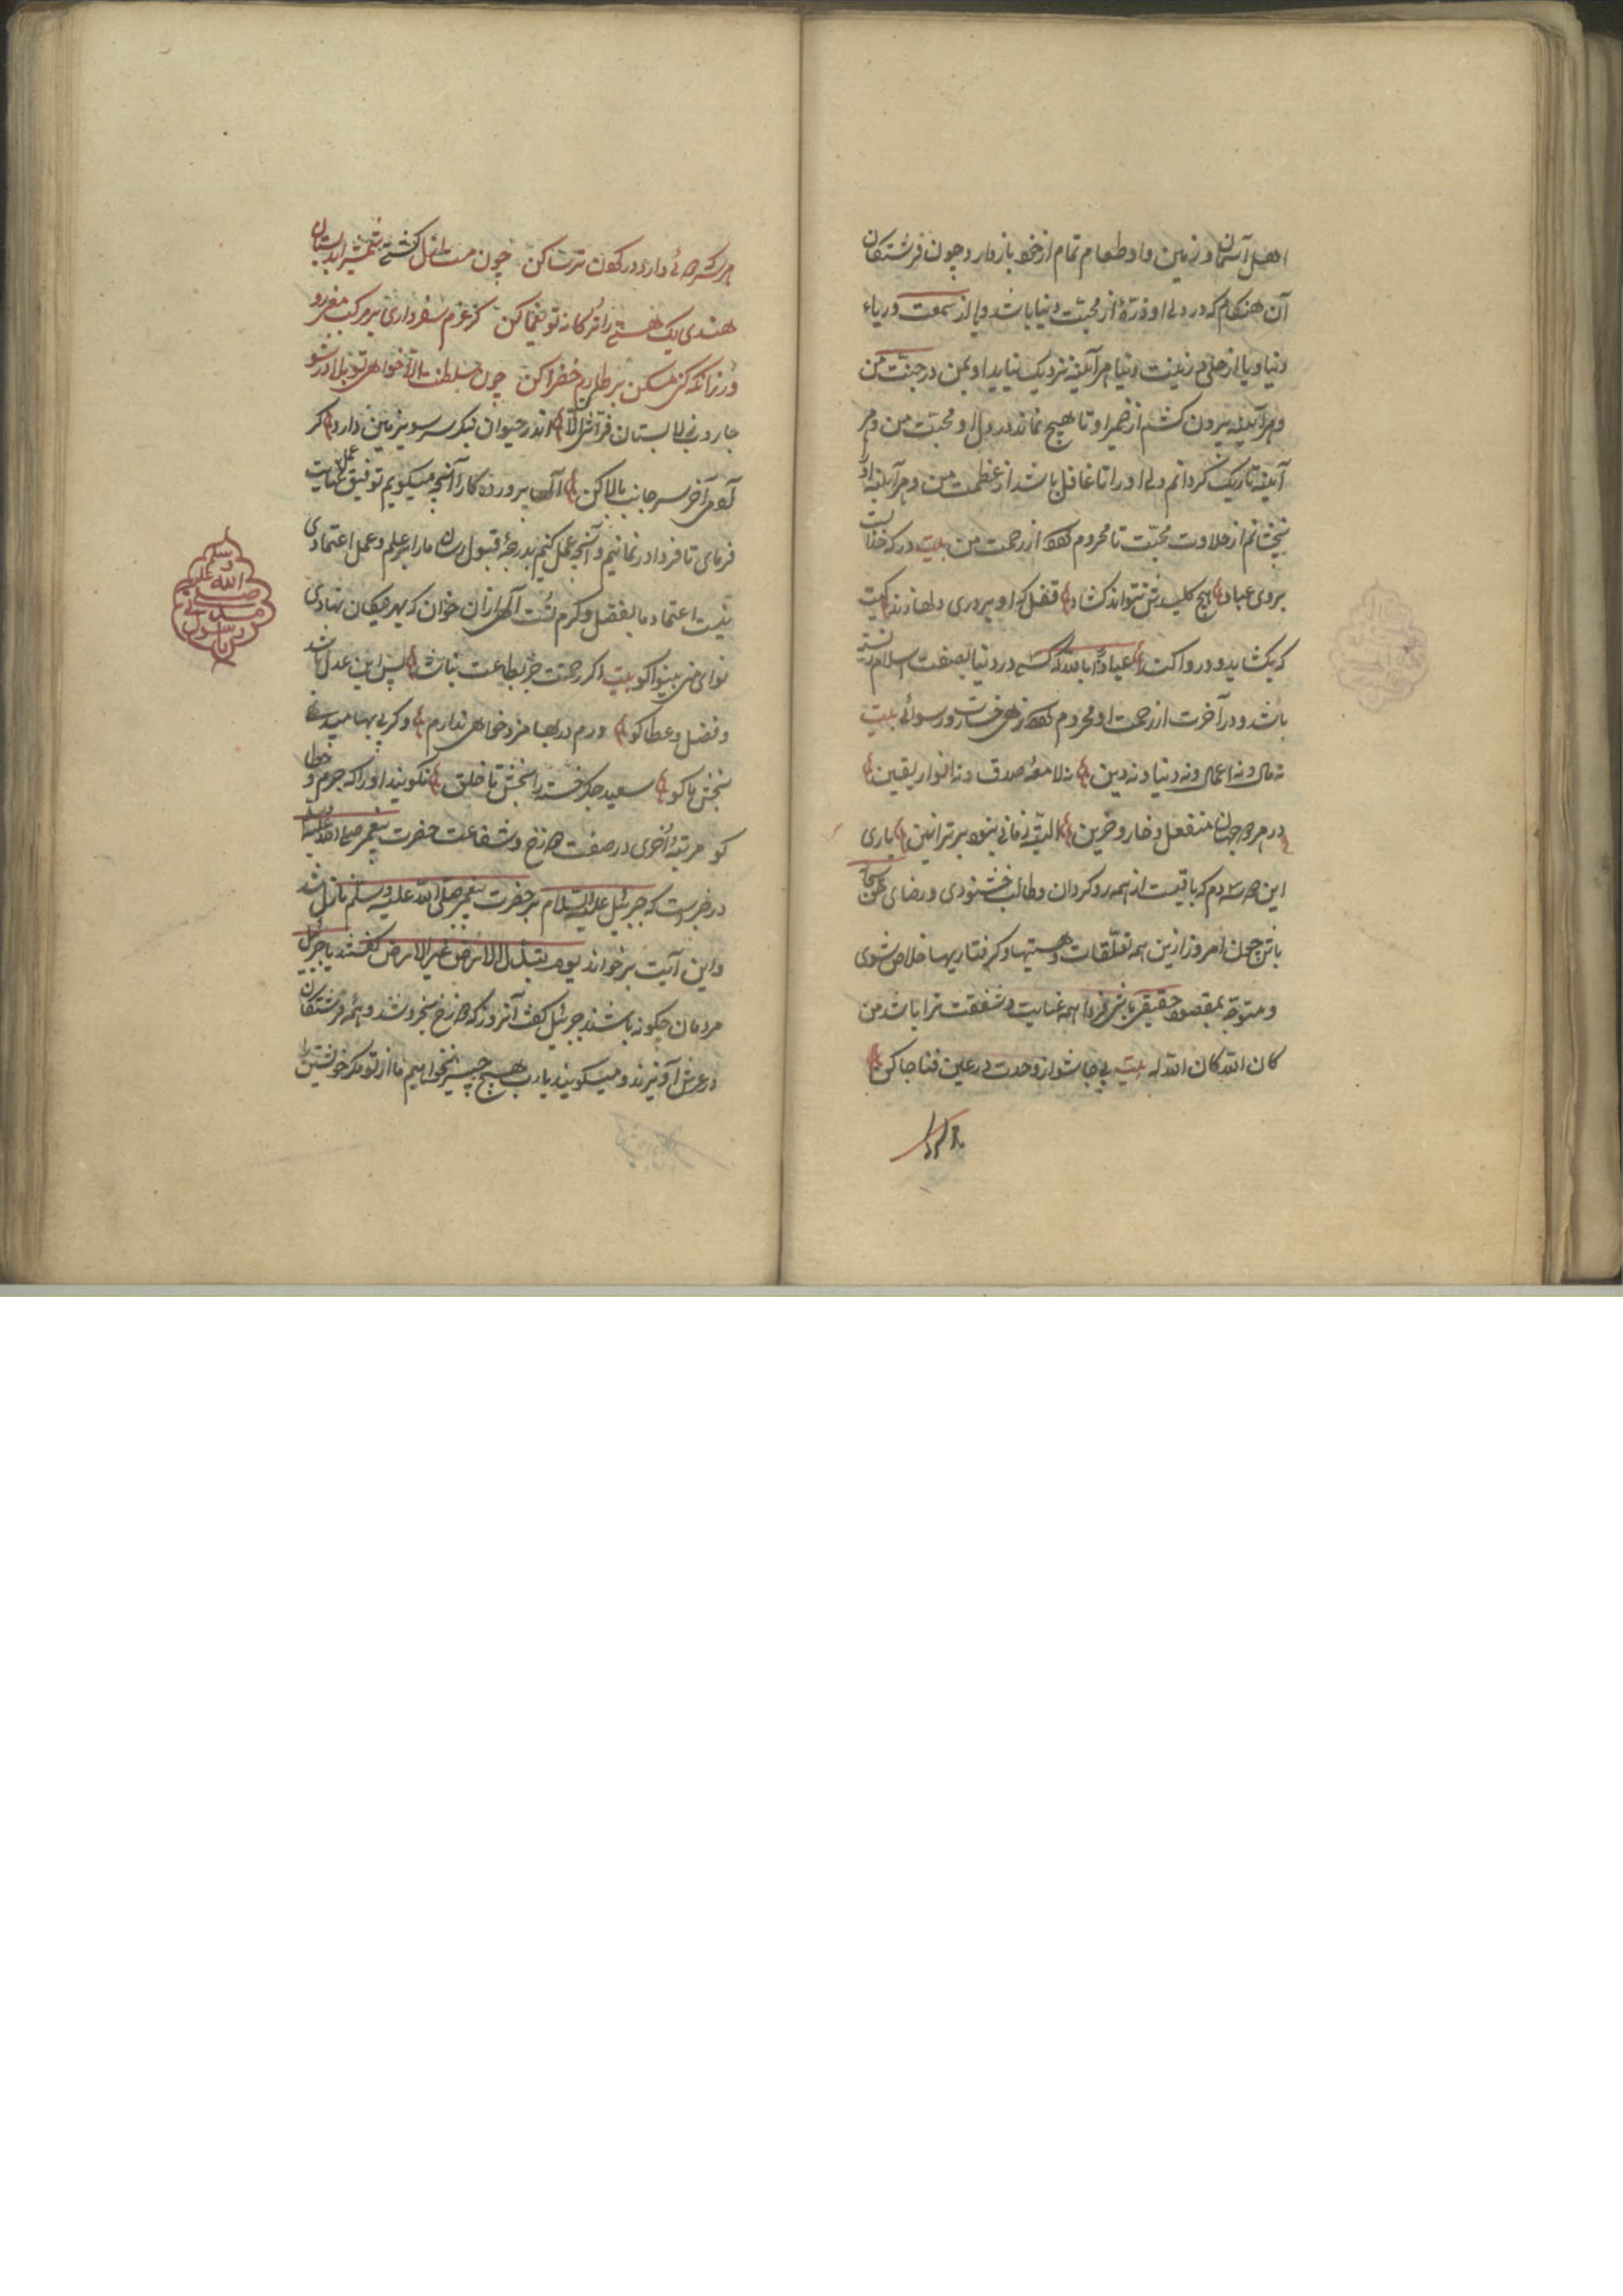 اهل آسمان و زمین و از طعام تمام از خود باز دارد چون فرشتکان
آن هنکام که در دل او ذرّهٔ از محبت دنیا باشد و یا از سمعت و ریاء
دنیا و یا از حلی و زینت دنیا هر آینه نزدیک نیاید او بمن در جنّت من
و هر آینه بیرون کشم از ضمیر او تا هیچ نماند در دل او محبت من و هر
آینه تاریک کردانم دل او را تا غافل باشد از عظمت من و هر آینه او را
نچشانم از حلاوت محبّت تا محروم از رحمت من بیت در که خدات
بروی عباد هیچ کلیدش نتواند کشاد قفل که او بر در دلها زند کیست
که بکشاید و در وا کند عیاذًا بالله که کسی در دنیا بصفت اسلام
باشد و در آخرت از رحمت او محروم زهی خسارت و رسوائی بیت
نه مال و نه اعمال و نه دنیا و نه دین نه لامعهٔ صدق و نه انوار یقین
در هر دو جهان منفعل و خار و حزین البته زمانی نبود برتر ازین باری
این دم که باقیست از همه رو کردان و طالب خشنودی و رضای حق سبحانه
باش چون امروز ازین همه تعلّقات و هستیها و کرفتاریها خلاص شوی
و متوجّه بمقصود حقیقی باشی فردا همه عنایت و شفقت ترا باشد من
کان لله کان الله له بیت بی جا شو از وحدت در عین فنا جا کن
هر سر که دوئی دارد در کردن ترسا کن چون مست ازل کشتی شمشیر ابد بستان
هندی بک هستی را ترکانه تو یغما کن کر عزم سفر داری بر مرکب معنی رو
ور زانکه کنی مسکن بر طارم خضرا کن چون سلطنت الّا خواهی تو بلا در شو
جاروب ز لا بستان فرّاشی الّا کن اندر حیوان بنکر سر سوی زمین دارد کر
آدمی آخر سر جانب بالا کن الٓهی پروردکارا آنچه میکویم توفیق عمل عنایت
فرمای تا فردا در نمانیم و آنچه عمل کنیم بدرجهٔ قبول رسان ما را بر علم و عمل اعتمادی
نیست اعتماد ما بفضل و کرم تست الٓهی از آن خوان که بهر نیکان نهادی
نوای من بینوا کو بیت اکر رحمت جز بطاعت نباشد پس این عدل باشد
و فضل و عطا کو ورم در بها مزد خواهی ندارم و کر بی بها میدهی
بخش ما کو سعید جکر خسته را بخش تا خلق نکویند او را که جرم و خطا
کو مرتبهٔ اخری در صفت دوزخ و شفاعت حضرت پیغمبر صلی الله علیه وسلم
در خبرست که جبرئیل علیه السلام بر حضرت پیغمبر صلی الله علیه وسلم نازل شد
و این آیت بر خواند یوم تبدل الارض غیر الارض کفتند یا جبرئیل
مردمان چکونه باشند جبرئیل کفت آنروز که دوزخ بخروشد و همه فرشتکان
در عرش آویزند و میکویند یا رب هیچ چیز نخواهیم ما از تو مکر خویشتن را